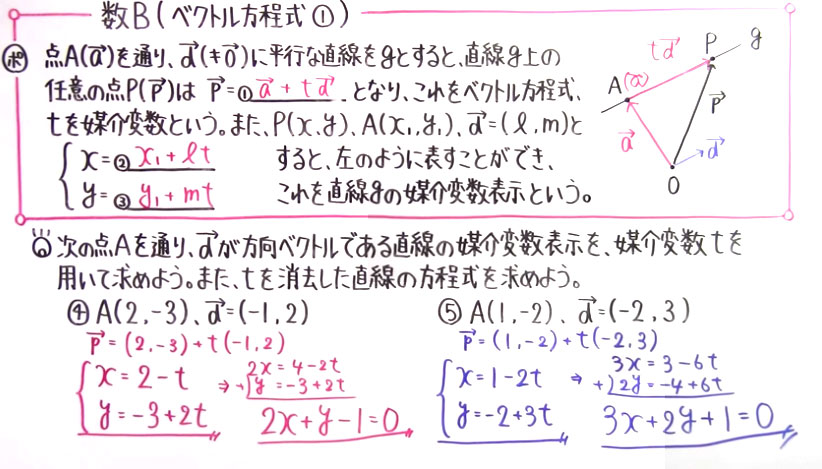 数B(ベクトル方程式①)
㋭ 点A(a⃗)を通り、d⃗(≠0⃗)に平行な直線をgとすると、直線g上の
任意の点P(p⃗)は p⃗=①a⃗+td⃗ となり、これをベクトル方程式、
tを媒介変数という。また、P(x,y)、A(x₁,y₁)、d⃗=(l,m)と
x=②x₁+lt すると、左のように表すことができ、
y=③y₁+mt これを直線gの媒介変数表示という。
td⃗ P g
A(a⃗)
a⃗ p⃗ d⃗
O
次の点Aを通り、d⃗が方向ベクトルである直線の媒介変数表示を、媒介変数tを
用いて求めよう。また、tを消去した直線の方程式を求めよう。
④A(2,-3)、d⃗=(-1,2)
p⃗=(2,-3)+t(-1,2)
x=2-t ⇒ 2x=4-2t
+)y=-3+2t
y=-3+2t 2x+y-1=0
⑤A(1,-2)、d⃗=(-2,3)
p⃗=(1,-2)+t(-2,3)
x=1-2t ⇒ 3x=3-6t
+)2y=-4+6t
y=-2+3t 3x+2y+1=0